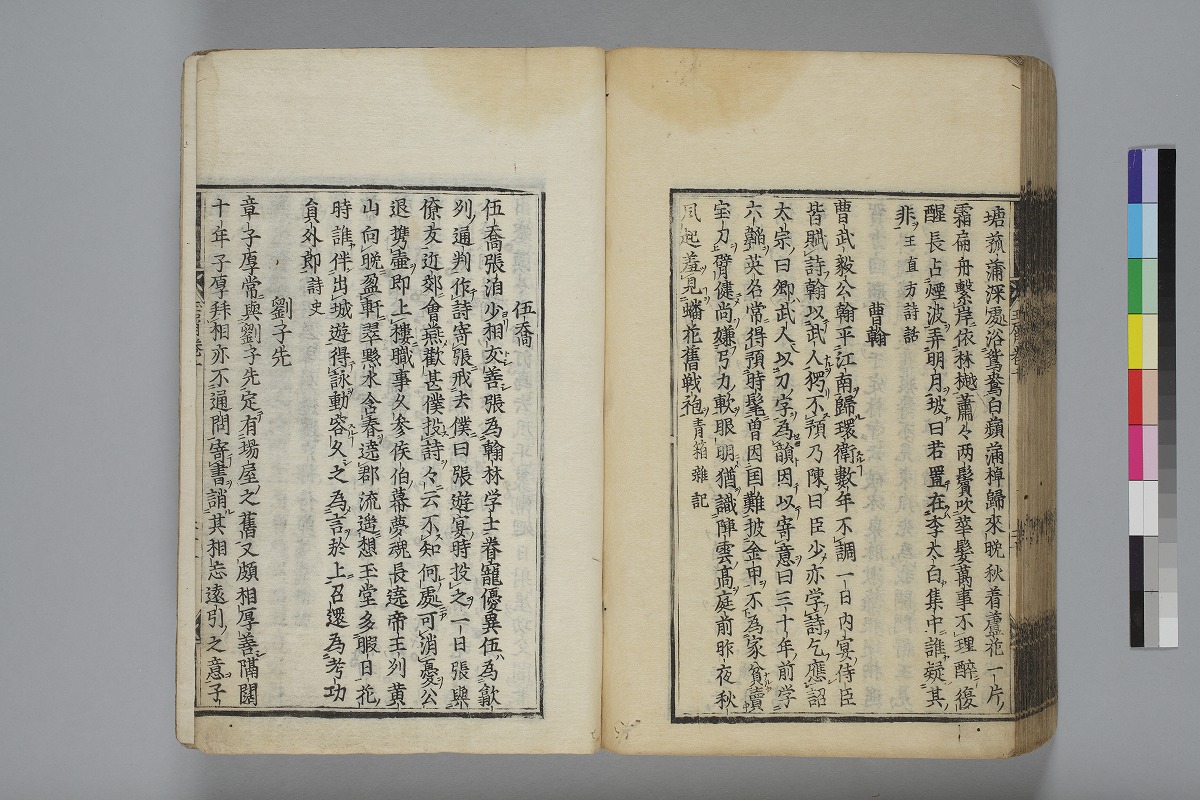 塘菰蒲深處浴鴛鴦白蘋蒲棹歸來晩秋着蘆花一片
霜扁舟繫岸依林樾蕭々两鬢吹華髮萬事不理醉復
醒長占煙波弄明月坡曰若置在李太白集中誰疑其
非王直方詩話
曹翰
曹武毅公翰平江南歸環衛數年不調一日内宴侍臣
皆賦詩翰以武人獨不預乃陳曰臣少亦学詩乞應詔
太宗曰卿武人以刀字為韻因以寄意曰三十年前学
六韜英名常得預時髦曽因国難披金甲不為家貧賣
宝刀臂健尚嫌弓力軟眼明猶識陣雲髙庭前昨夜秋
風起羞見蟠花舊戦袍青箱雜記
伍喬
伍喬張洎少相友善張為翰林学士眷寵優異伍為歙
州通判作詩寄張戒去僕曰張遊宴時投之一日張與
僚友近郊會燕歡甚僕投詩々云不知何處可消憂公
退携壷即上樓職事久參侯伯幕夢魂長遶帝王州黄
山向晩盈軒翠黟水含春遶郡流遥想玉堂多暇日花
時誰伴出城遊得詠動容久之為言於上召還為考功
員外郎詩史
劉子先
章子厚常與劉子先定有場屋之舊又頗相厚善隔闊
十年子厚拜相亦不通問寄書誚其相忘遠引之意子